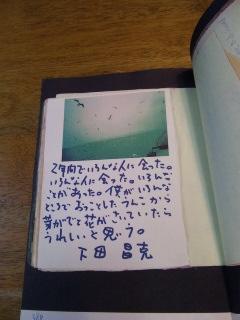 2年間でいろんな人に会った。
いろんな人に会った。いろんな
ことがあった。僕がいろんな
ところでおっことしたうんこから
芽がでて花がさいていたら
うれしいと思う。
下田 昌克